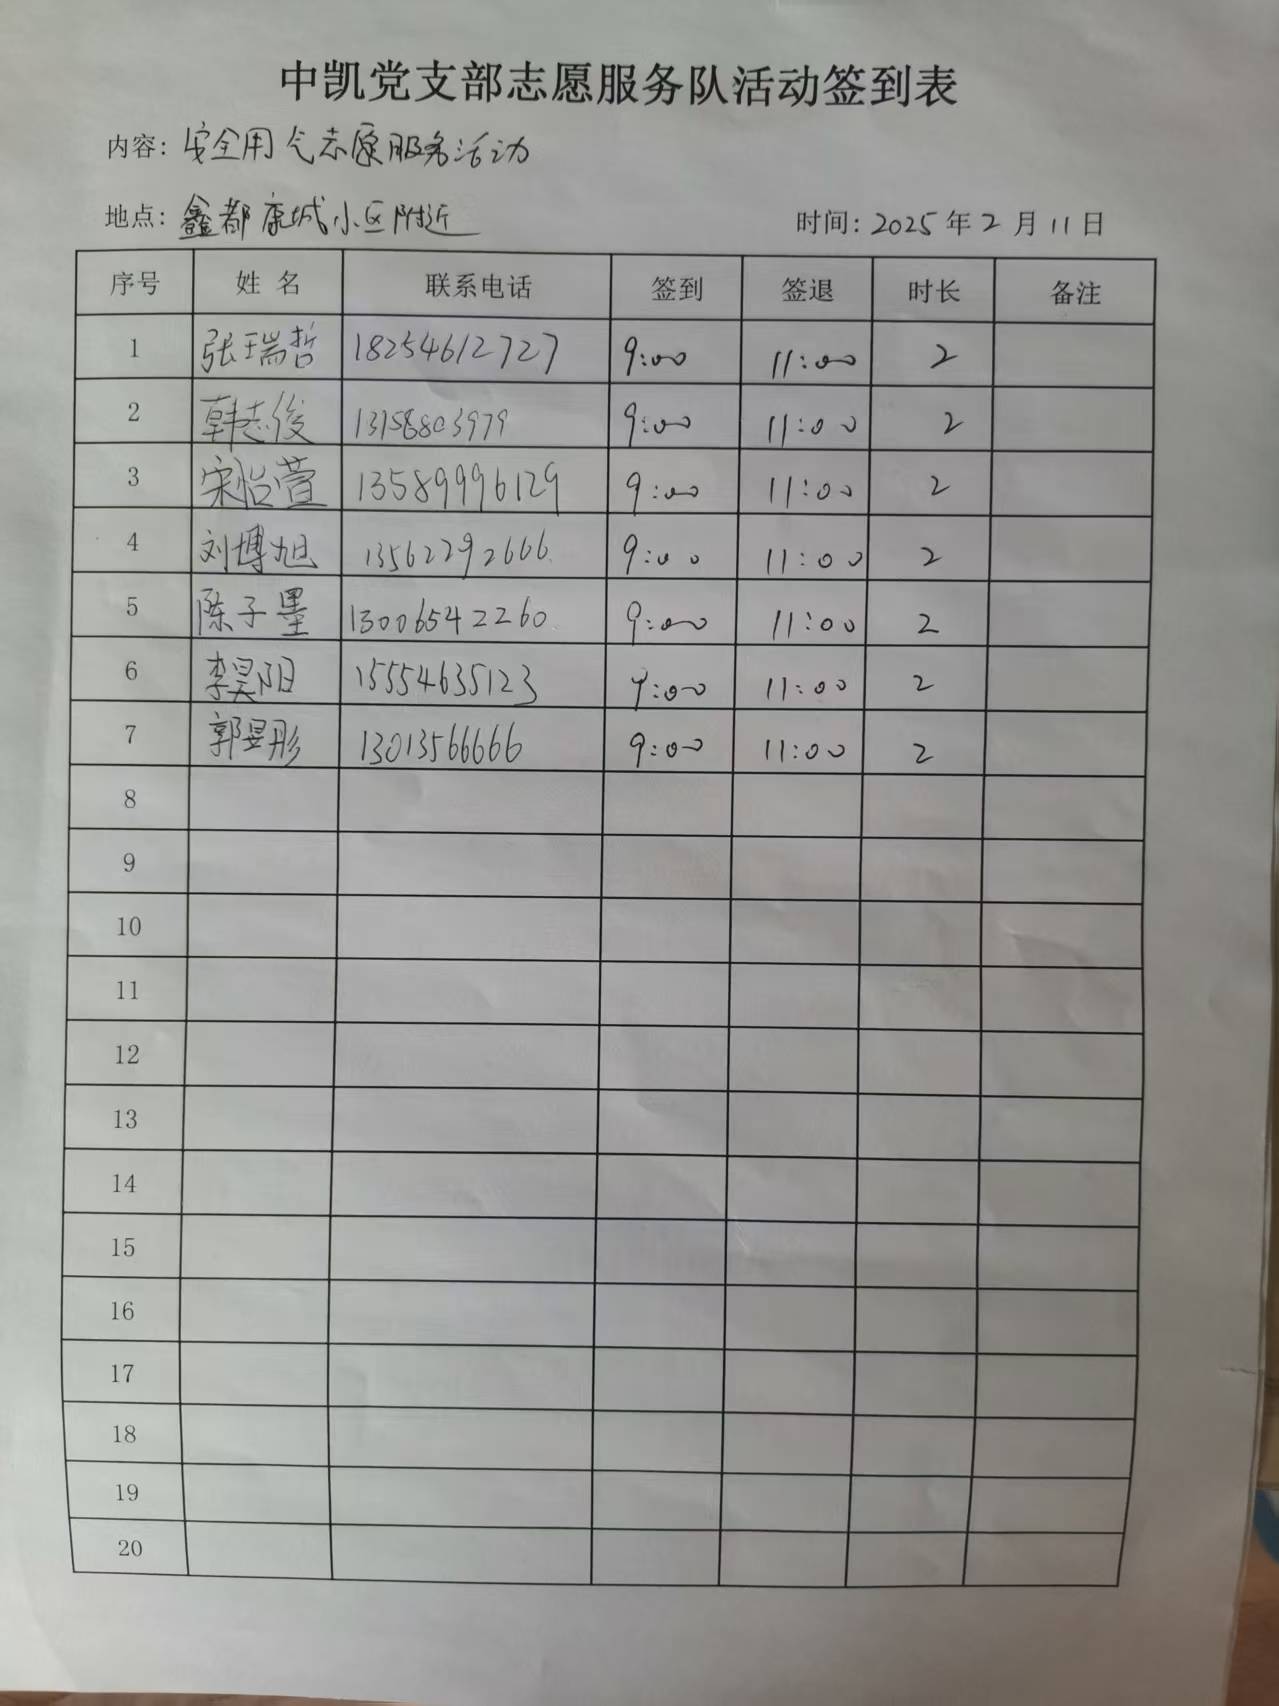 中凯党支部志愿服务队活动签到表
内容: 安全用气志愿服务活动
地点: 鑫都康城小区附近 时间: 2025 年 2 月 11 日
序号 姓名 联系电话 签到 签退 时长 备注
1 张瑞哲 18254612727 9:00 11:00 2
2 韩志俊 13158803979 9:00 11:00 2
3 宋怡萱 13589996129 9:00 11:00 2
4 刘博旭 13562292666 9:00 11:00 2
5 陈子墨 13006542260 9:00 11:00 2
6 李昊阳 15554635123 9:00 11:00 2
7 郭昱彤 13013566666 9:00 11:00 2
8
9
10
11
12
13
14
15
16
17
18
19
20